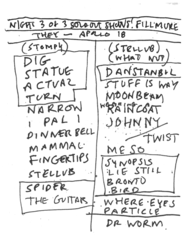 NIGHT 3 OF 3 SOLD OUT SHOWS! FILLMORE
THEY — APOLLO 18
(STOMPY)
DIG
STATUE
ACTUAL
TURN
NARROW
I PAL 1
DINNER BELL
MAMMAL
FINGERTIPS
STELLUB
SPIDER
THE GUITAR
(STELLUB)
(WHAT NOT)
DANSTANBUL
STUFF IS WAY
MOONBEAM
RAINCOAT
JOHNNY
TWIST
MESO
SYNOPSIS
LIE STILL
BRONTO
BIRD
WHERE EYES
PARTICLE
DR WORM